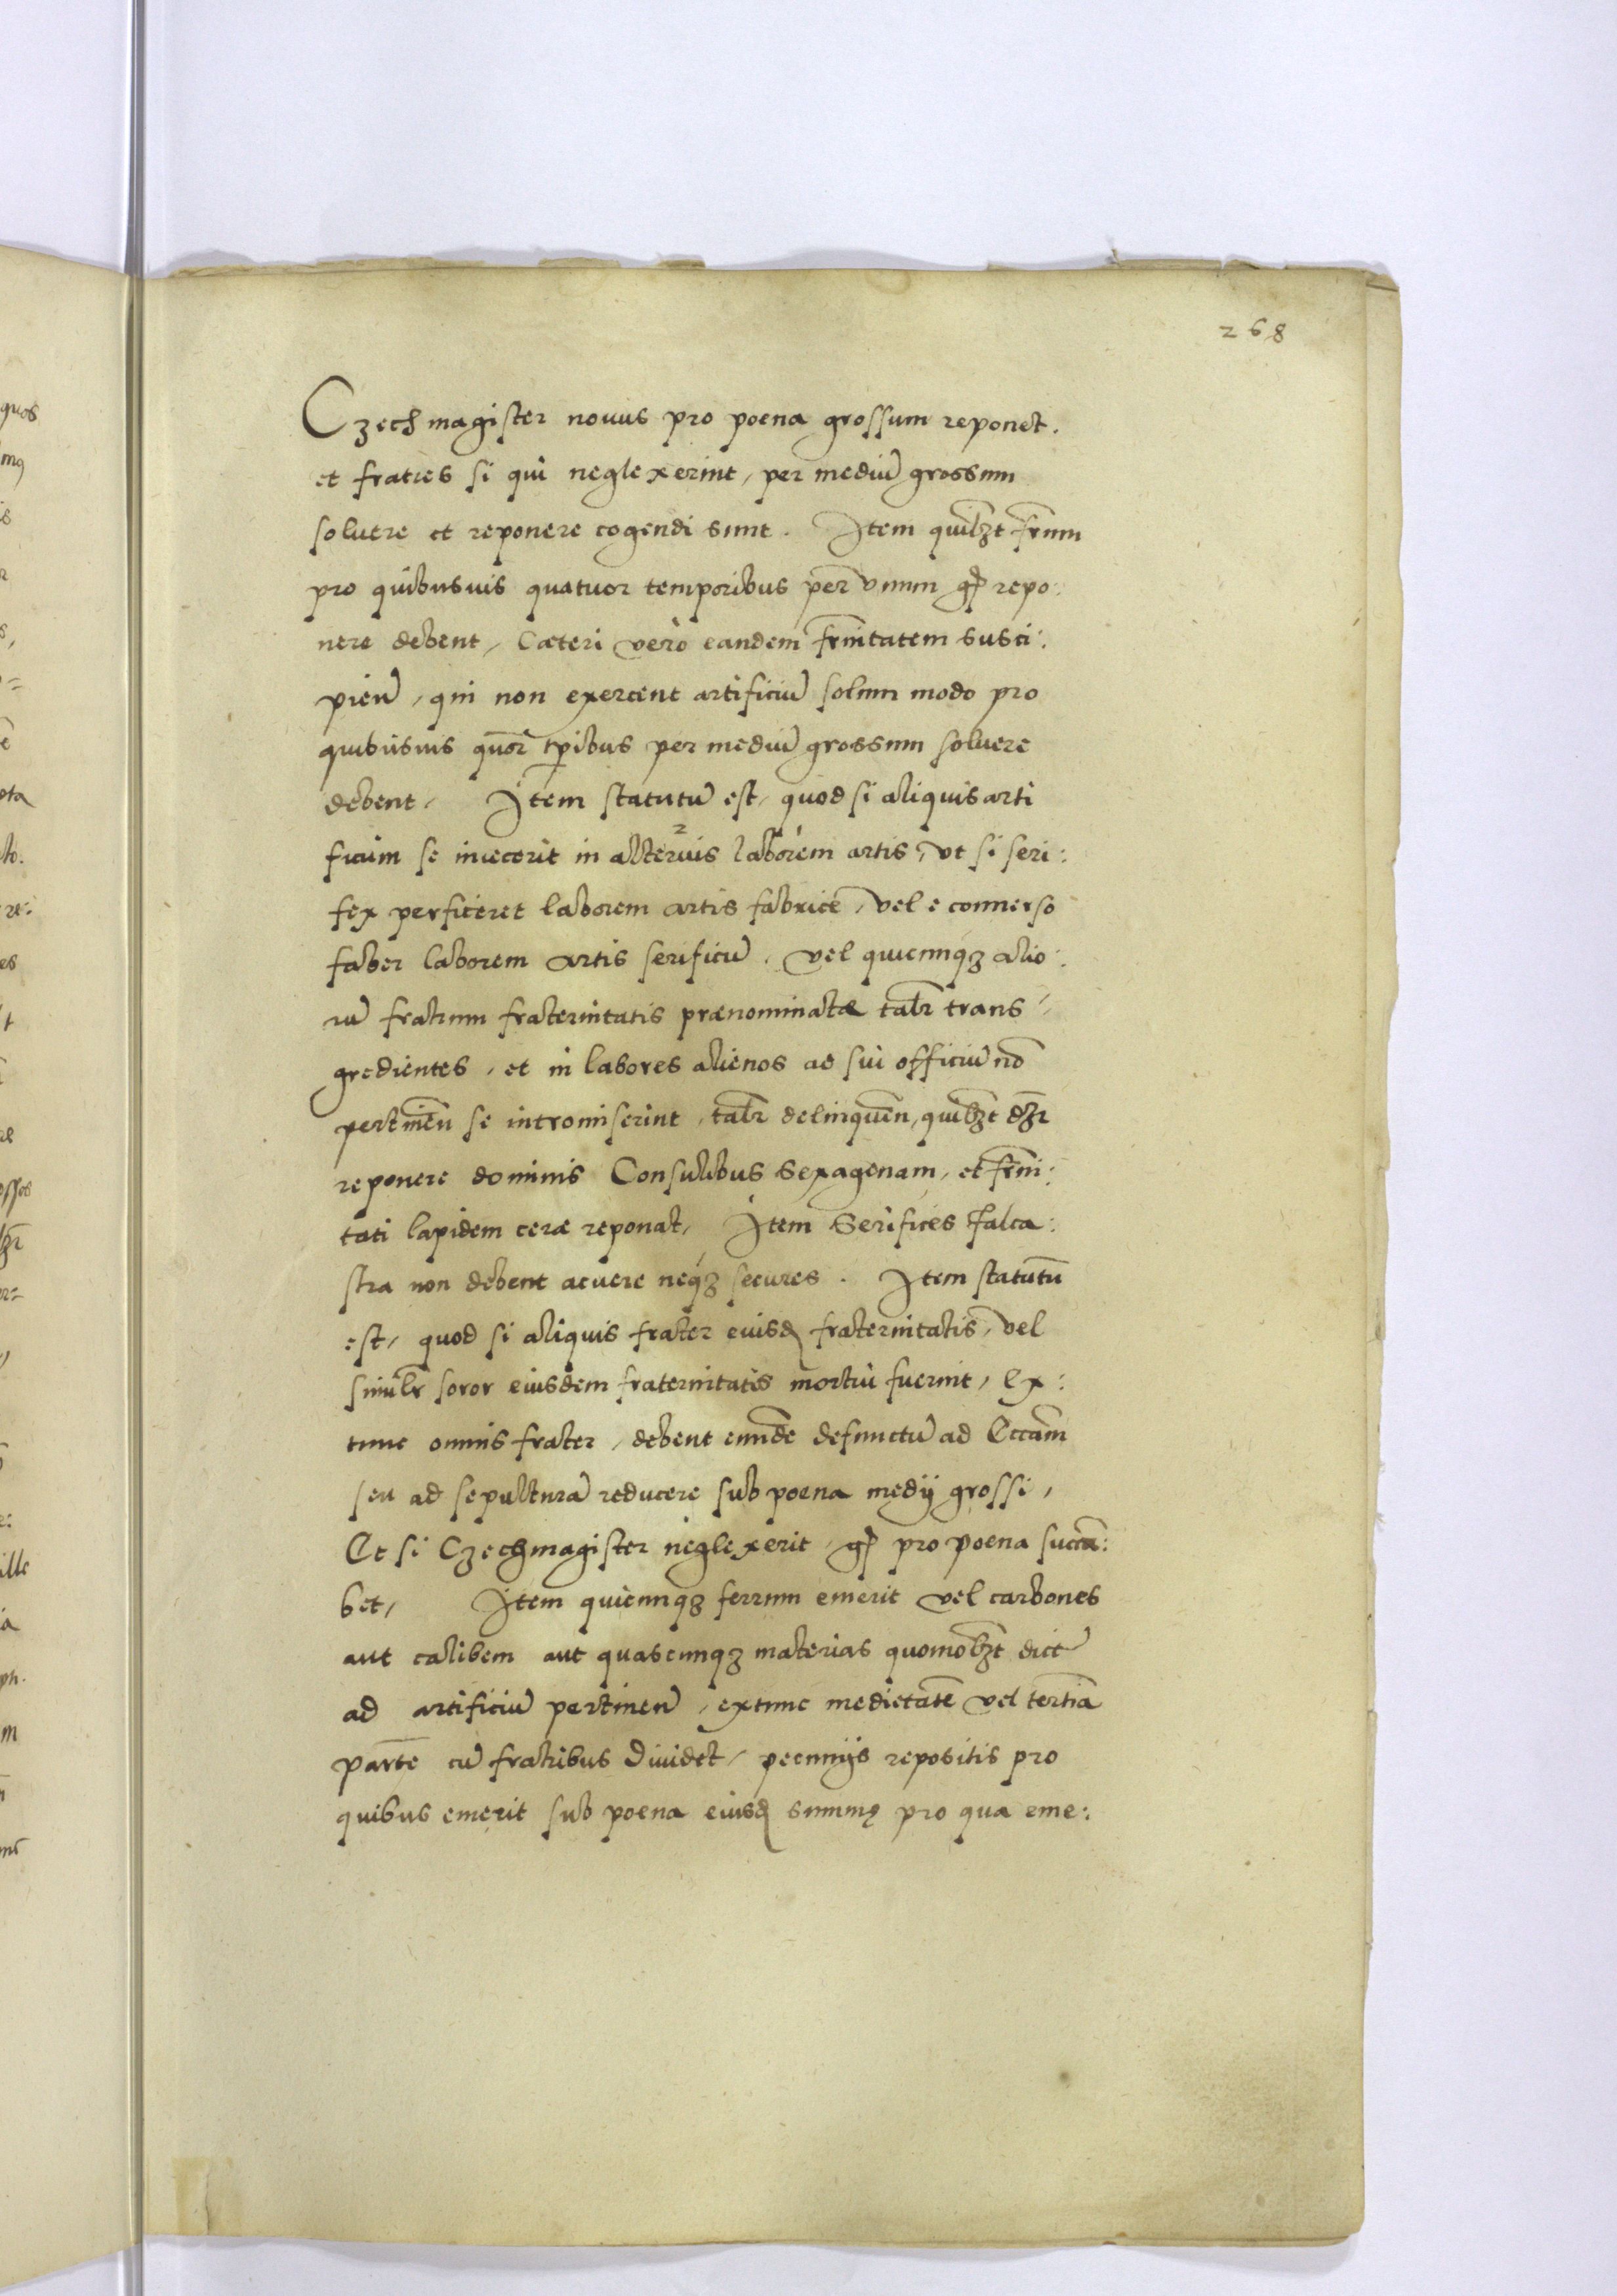 268
Czechmagister novus pro poena grossum reponet.
et fratres si qui neglexerint, per mediū grossum
soluere et reponere cogendi sunt. Item quilꝫt fr̄um
pro quibusuis quatuor temporibus per vnum gꝭ repo:
nere debent, Cæteri vero eandem fr̄nitatem susci:
pien̄, qui non exercent artificiū solum modo pro
quibusuis quōr tꝑibus per mediū grossum soluere
debent, Item statutū est, quod si aliquis arti
ficum se iniecerit in alterius laborem artis, vt si seri:
fex perficeret laborem artis fabrice, vel e conuerso
faber laborem artis serificū, vel quicunqꝫ alio:
rū fratrum fraternitatis prænominatæ talr̄ trans
gredientes, et in labores alienos ad sui officiū nō
pertinēn se intromiserint, talr̄ delinquēn, quilꝫt dꝫr
reponere dominis Consulibus Sexagenam, et fr̄ni:
tati lapidem ceræ reponat, Item Serifices falca:
stra non debent acuere neqꝫ secures. Item statutū
est, quod si aliquis frater eiusdꝫ fraternitatis, vel
similr̄ soror eiusdem fraternitatis mortui fuerint, Ex:
tunc omnis frater, debent eundē defunctū ad Eccām
seu ad sepulturā reducere sub poena medij grossi,
Et si Czechmagister neglexerit gꝭ pro poena succū:
bet, Item quicunqꝫ ferrum emerit vel carbones
aut calibem aut quascunqꝫ materias quomolꝫt dict̄
ad artificiū pertinen̄, extunc medietatē vel tertiā
partē cū fratribus diuidet, pecunijs repositis pro
quibus emerit sub poena eiusdꝫ summę pro qua eme: